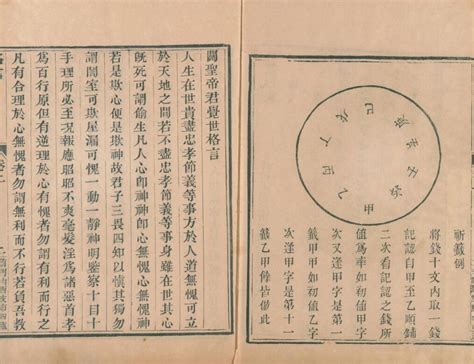 祈籤例
將錢十文內取一
記認自甲至乙順鋪
二次看記認之錢所
值為率如初值甲字
次又逢甲字是第一
籤甲甲如初值乙字
次逢甲字是第十一
籤乙甲餘皆倣此
甲
乙
丁
戊
巳
辛
壬
癸
關聖帝君覺世格言
人生在世貴盡忠孝節義等事方於人道無愧可立
於天地之間若不盡忠孝節義等事身雖在世其心
既死可謂偷生凡人心即神神即心無愧心無愧神
若是欺心便是欺神故君子三畏四知以慎其獨勿
謂闇室可欺屋漏可愧一動一靜神明鑒察十目十
手理所必至況報應昭昭不爽毫髮淫為諸惡首孝
為百行原但有逆理於心有愧者勿謂有利而行之
凡有合理於心無愧者勿謂無利而不行若負吾教